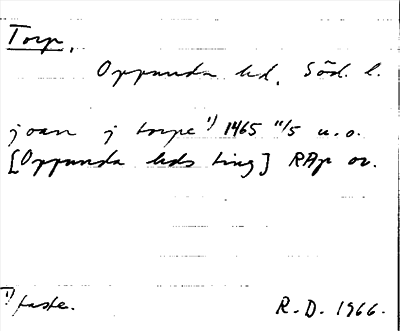 Torp.
Oppunda hd. Söd. l.
joan j torpe 1) 1465 11/5 u.o.
[Oppunda hds ting] RAp or.
1) faste.
R.D. 1966.